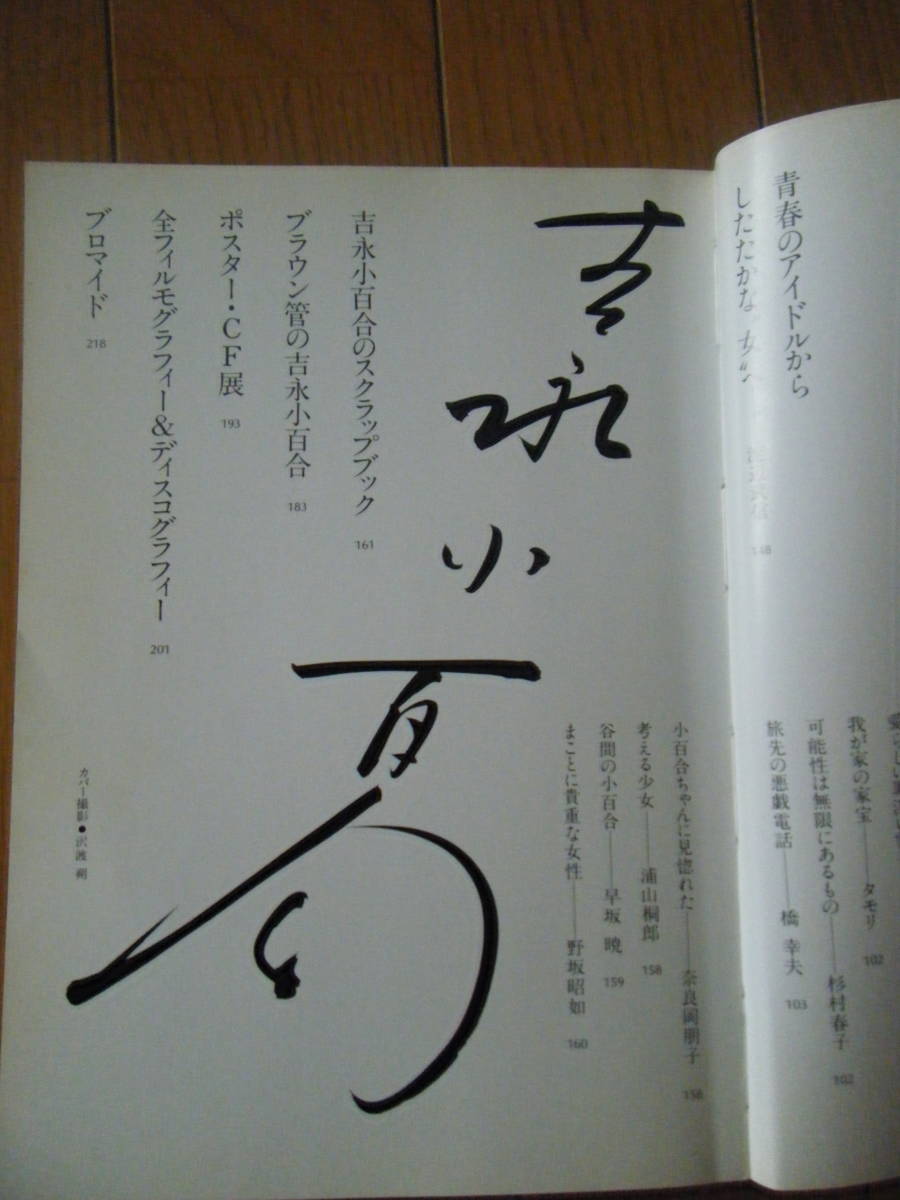 我が家の家宝――タモリ 102
可能性は無限にあるもの――杉村春子 102
旅先の悪戯電話――橋 幸夫 103
青春のアイドルから
したたかな
148
小百合ちゃんに見惚れた――奈良岡朋子 158
考える少女――浦山桐郎 158
谷間の小百合――早坂 暁 159
まことに貴重な女性――野坂昭如 160
吉永小百合
吉永小百合のスクラップブック 161
ブラウン管の吉永小百合 183
ポスター・CF展 193
全フィルモグラフィー&ディスコグラフィー 201
ブロマイド 218
カバー撮影●沢渡 朔